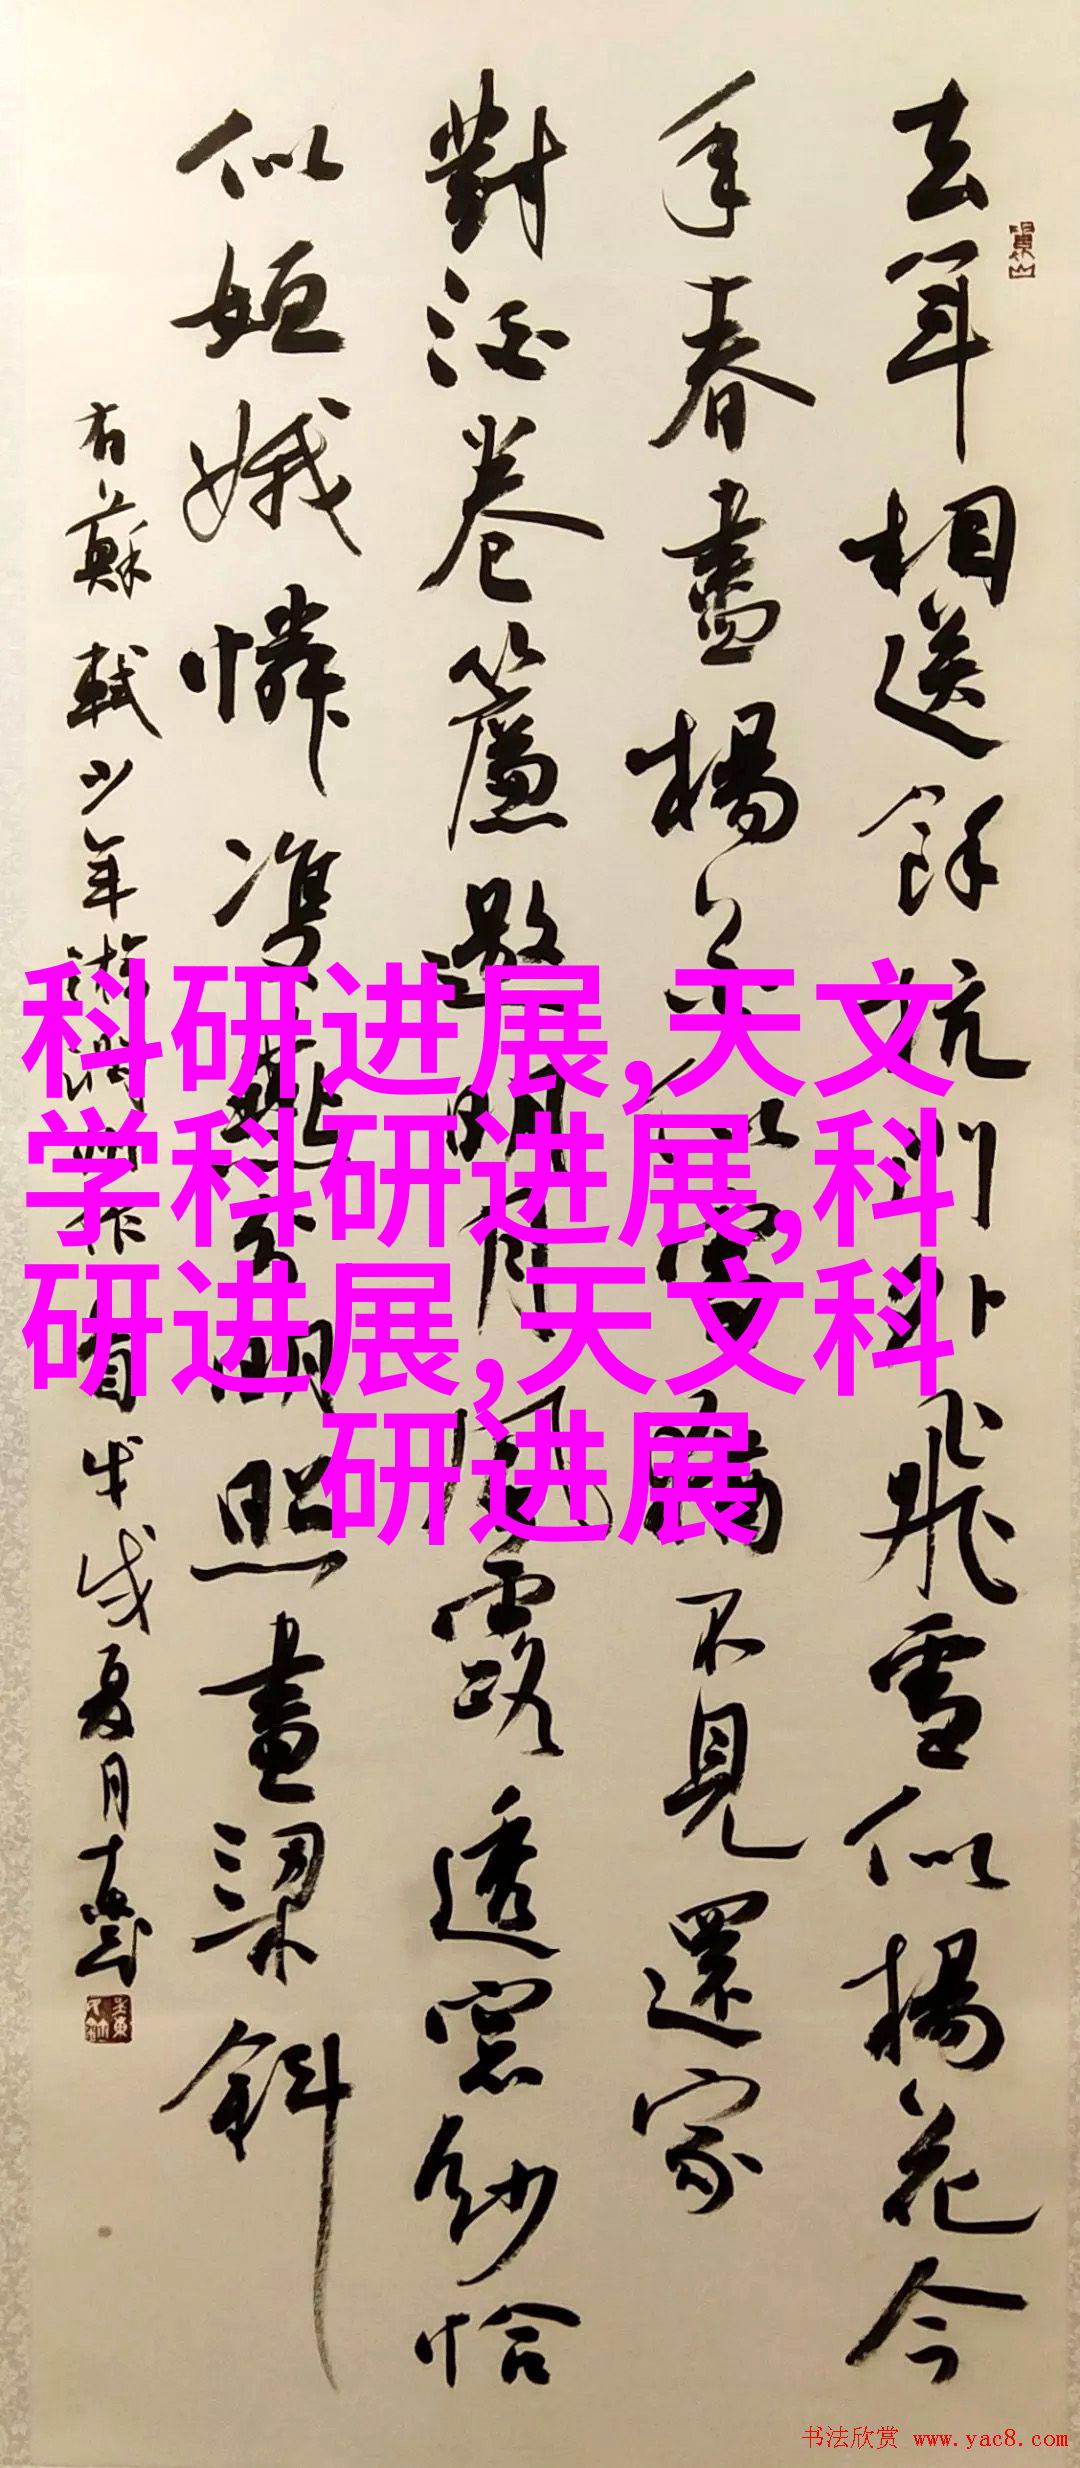 去年相送餘杭門外飛雪似楊花今
年春盡楊花似雪猶不見還家
對酒卷簾邀明月風露透窗紗恰
似姮娥憐雙燕分明照畫梁斜
右蘇軾少年游潤州作首戊戌夏月
科研进展,天文
学科研进展,科
研进展,天文科
研进展
书法欣赏 www.yac8.com